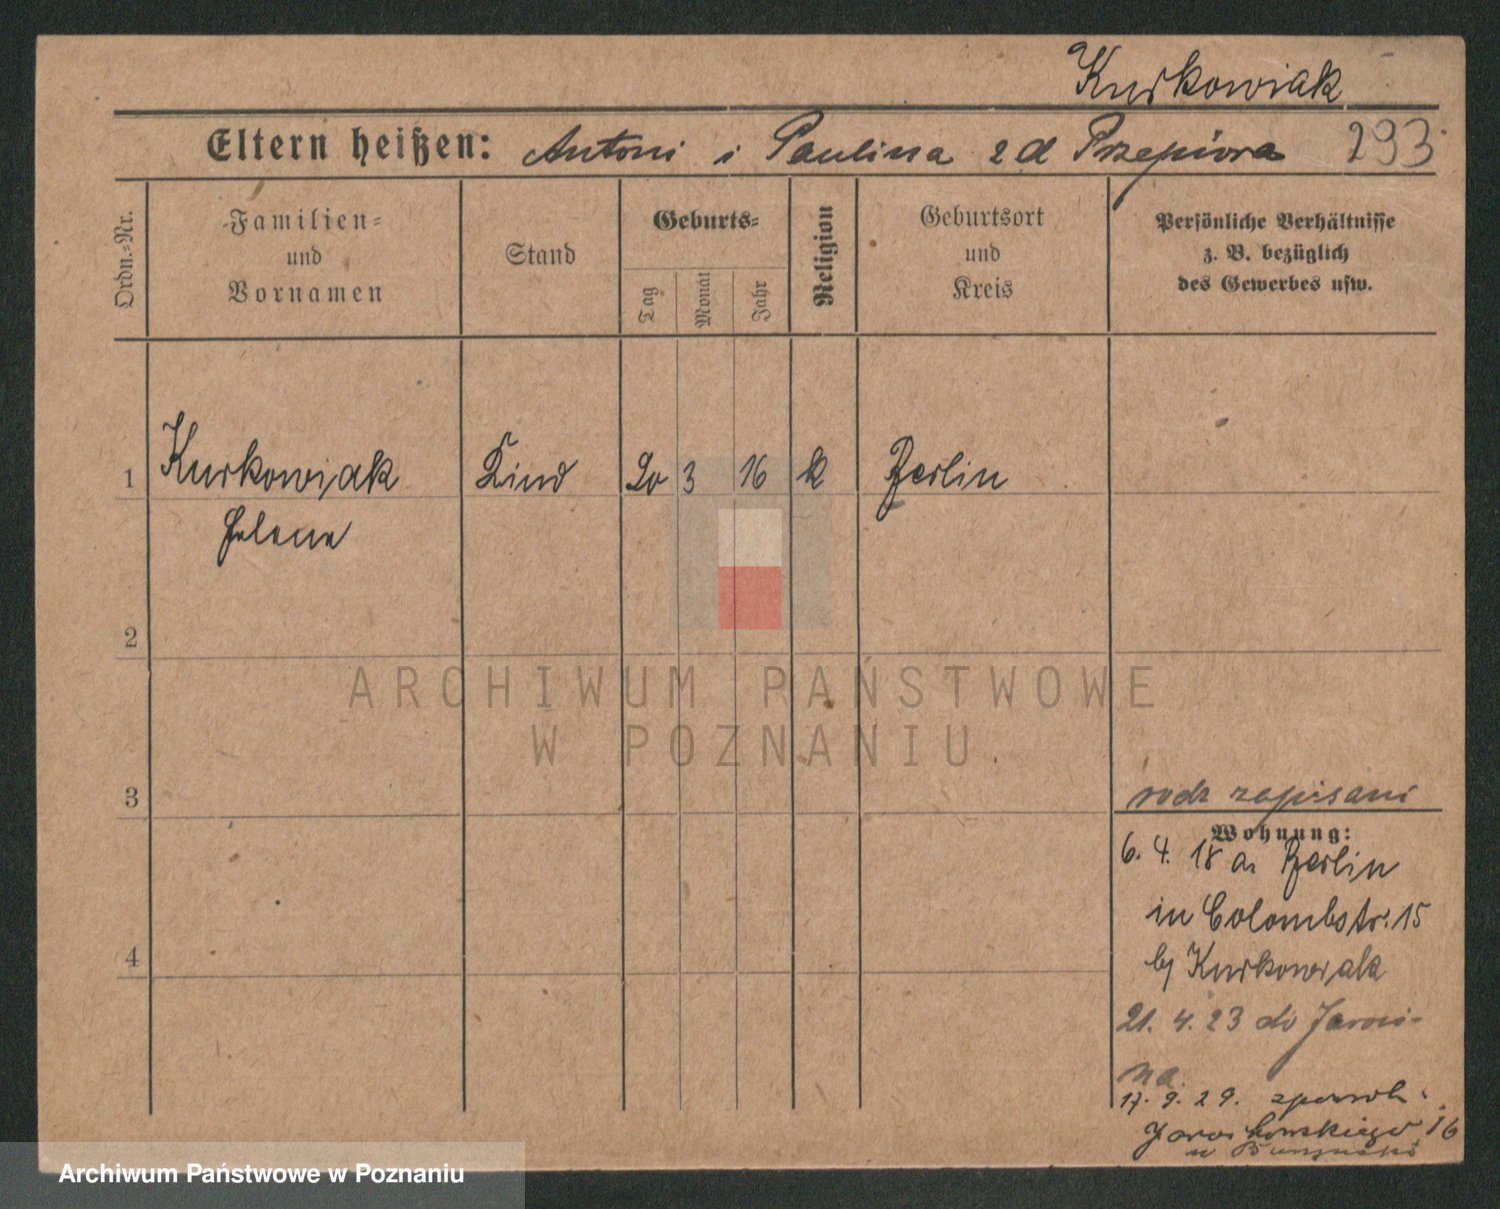 Kurkowiak
Eltern heißen: Antoni i Paulina zd Przepióra 293
Ordn.=Nr.
Familien=
und
Vornamen
Stand
Geburts=
Tag
Monat
Jahr
Religion
Geburtsort
und
Kreis
Persönliche Verhältnisse
z. B. bezüglich
des Gewerbes usw.
1 Kurkowiak Kind 20 3 16 k Berlin
Helene
2
ARCHIWUM PAŃSTWOWE
W POZNANIU
3
rodz zapisani
Wohnung:
6. 4. 18 a. Berlin
in Colombstr. 15
bj Kurkowiak
4
21. 4. 23 do Jaroci-
na.
17. 9. 29.
Jarochowskiego 16
u
Archiwum Państwowe w Poznaniu